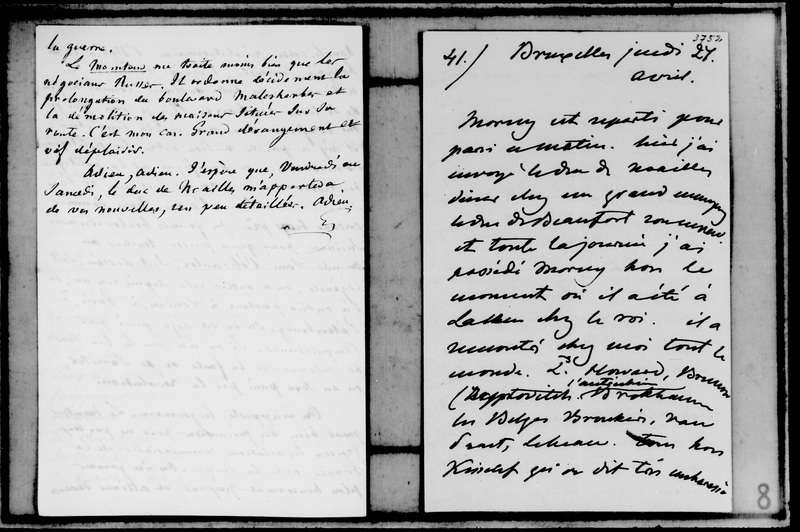 la guerre.
Le Moniteur me traite moins bien que les
négocians Russes. Il ordonne décidément la
prolongation du boulevard Malesherbes et
la démolition des maisons situées sur sa
route. C'est mon cas. Grand dérangement et
vif déplaisir.
Adieu, adieu. J'espère que, Vendredi ou
Samedi, le duc de Noailles m'apportera
de vos nouvelles, un peu détaillées. Adieu.
G
3752
41./ Bruxelles jeudi 27
avril.
Morny est reparti pour
Paris ce matin. hier j'ai
envoyé le duc de Noailles
diner chez un grand ennuyeux
le duc de Beaufort son cousin
et toute la journée j'ai
possédé Morny hors le
moment où il a été à
Laeken chez le roi. il a
rencontré chez moi tout le
monde. Ld Howard, Brunnow
l'autrichien
les Belges Brouckère, van
Praet, Lebeau. hors
Kisseleff qui se dit très embarrassé
8